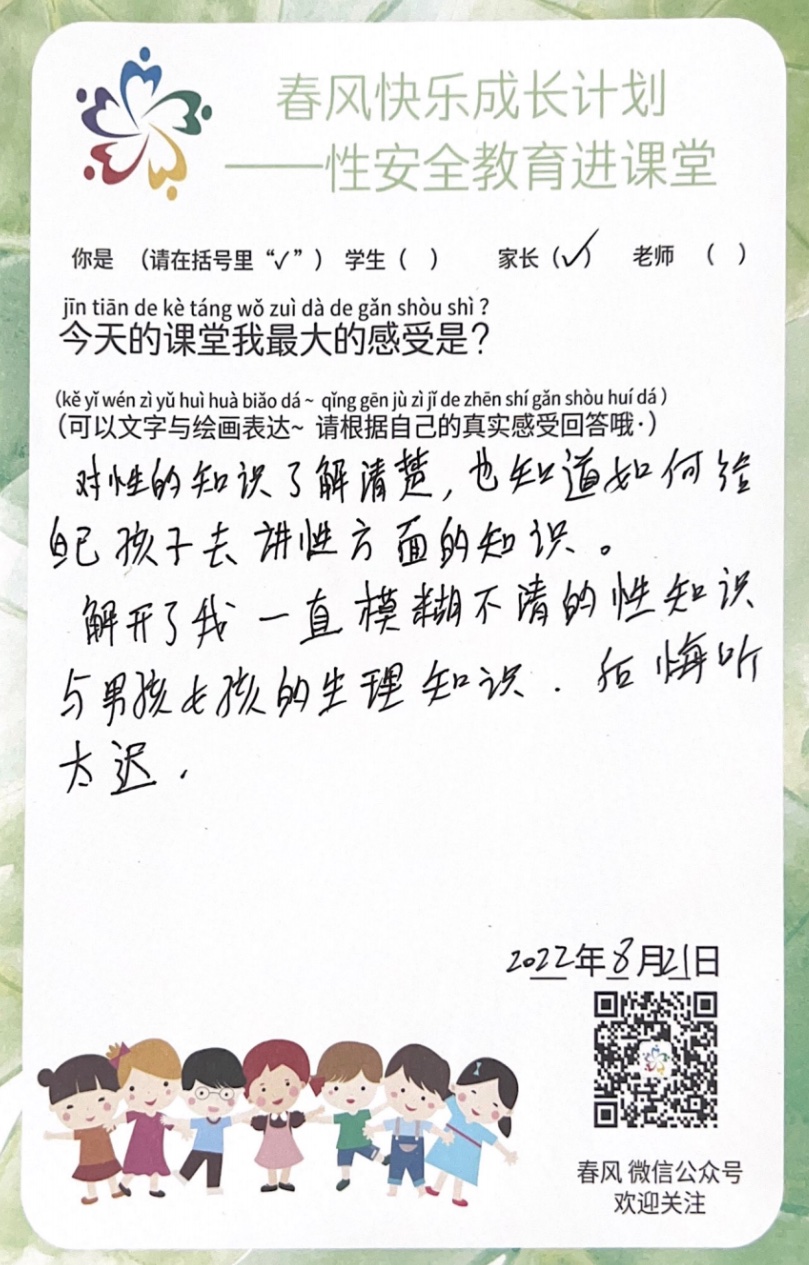 春风快乐成长计划
——性安全教育进课堂
你是 （请在括号里“√”） 学生（ ） 家长（√） 老师 （ ）
jīn tiān de kè táng wǒ zuì dà de gǎn shòu shì ?
今天的课堂我最大的感受是?
(kě yǐ wén zì yǔ huì huà biǎo dá ~ qǐng gēn jù zì jǐ de zhēn shí gǎn shòu huí dá )
(可以文字与绘画表达~ 请根据自己的真实感受回答哦·)
对性的知识了解清楚，也知道如何给
自己孩子去讲性方面的知识。
解开了我一直模糊不清的性知识
与男孩女孩的生理知识．后悔听
太迟．
2022年8月21日
春风 微信公众号
欢迎关注